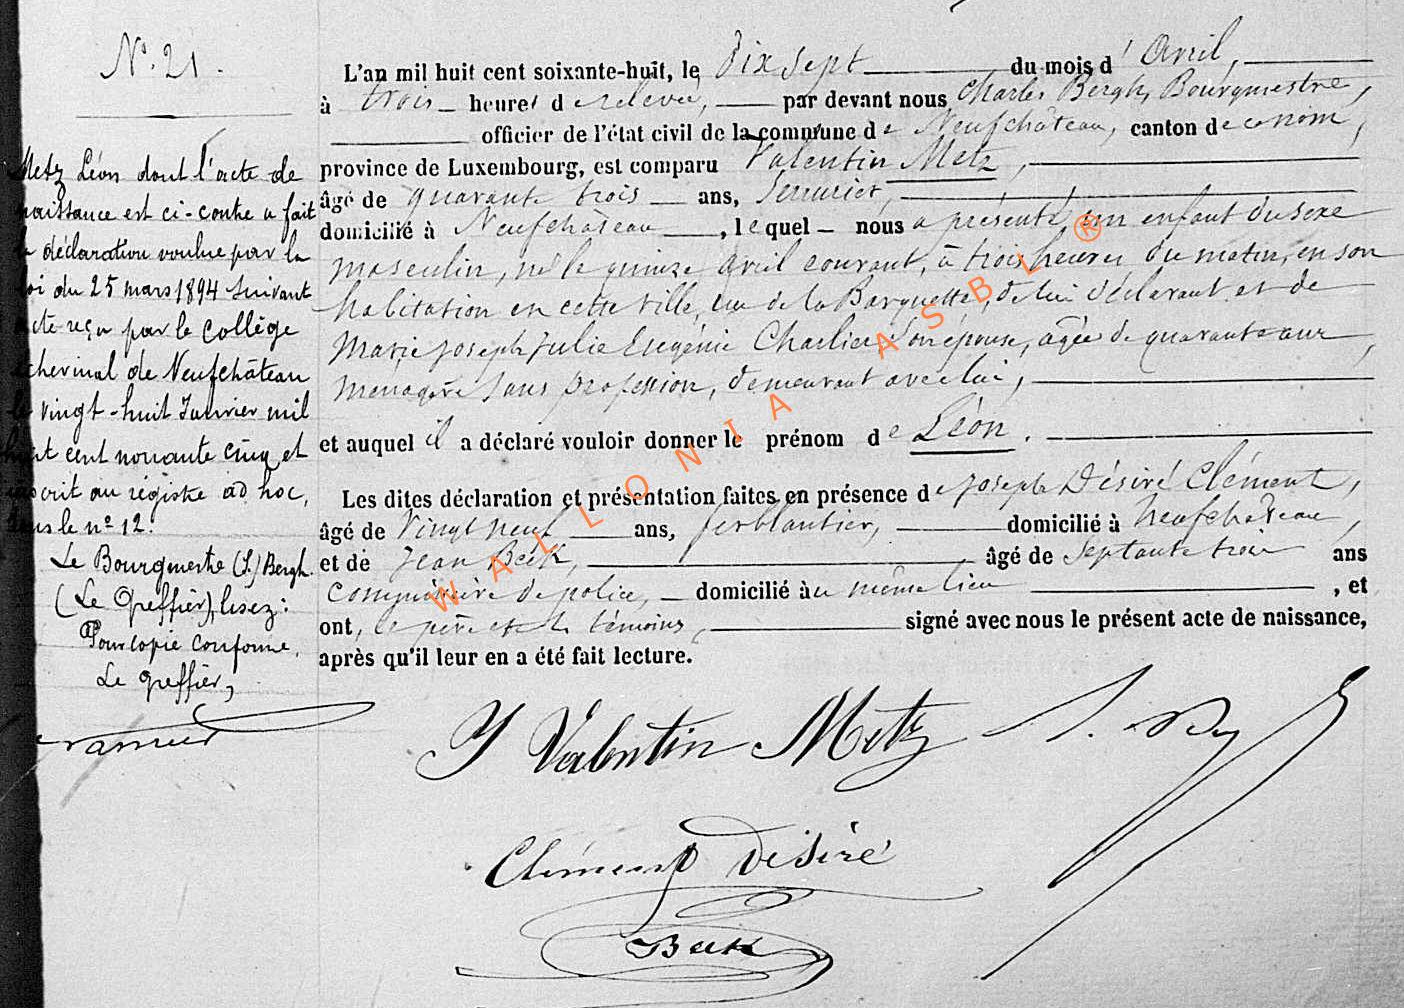 N° 21.
Metz Léon dont l'acte de
naissance est ci-contre a fait
la déclaration voulue par la
loi du 25 mars 1894 suivant
acte reçu par le collège
échevinal de Neufchâteau
le vingt-huit Janvier mil
huit cent nonante cinq et
inscrit au régistre ad hoc,
sous le n° 12.
Le Bourgmestre (S.) Bergh.
(Le Greffier), lisez:
Pour copie conforme,
Le greffier,
L'an mil huit cent soixante-huit, le dix sept du mois d'Avril,
à trois heures de relevée, par devant nous Charles Bergh, Bourgmestre,
officier de l'état civil de la commune de Neufchâteau, canton de ce nom,
province de Luxembourg, est comparu Valentin Metz,
âgé de quarante trois ans, Serrurier,
domicilié à Neufchâteau, lequel nous a présenté un enfant du sexe
masculin, né le quinze avril courant, à trois heures du matin, en son
habitation en cette ville, rue de la Barquette, de lui déclarant et de
Marie Joseph Julie Eugénie Charlier son épouse, agée de quarante aus,
menagère sans profession, demeurant avec lui,
et auquel il a déclaré vouloir donner le prénom de Léon.
Les dites déclaration et présentation faites en présence de Joseph Désiré Clément,
âgé de Vingt neuf ans, ferblantier, domicilié à Neufchâteau,
et de Jean Beck, âgé de Septante trois ans
commissaire de police, domicilié au même lieu, et
ont, le père et les témoins, signé avec nous le présent acte de naissance,
après qu'il leur en a été fait lecture.
J Valentin Metz
Clément Désiré
Beck
WALLONIA ASBL ®